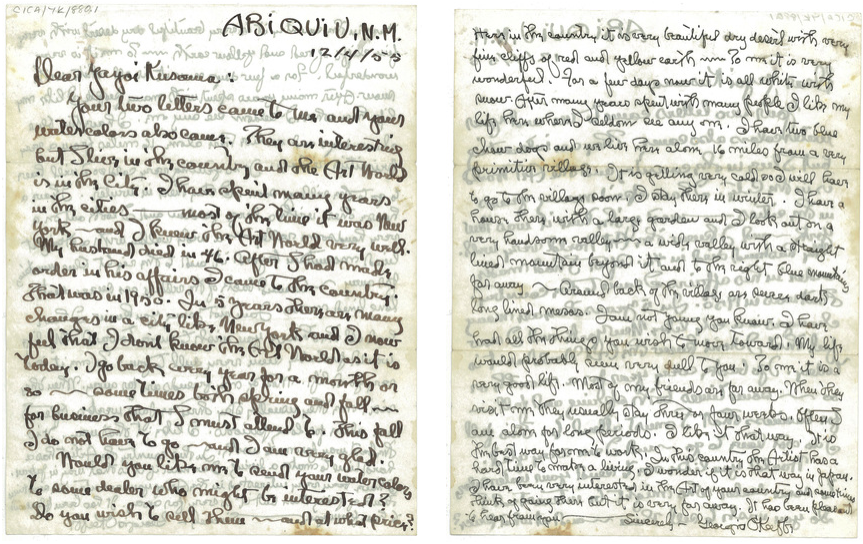 CICA/YK/8821
ABiQUiU, N.M.
12/4/55
Dear Yayoi Kusama:
Your two letters came to me and your
watercolors also came. They are interesting
but I live in the country and the Art World
is in the City. I have spent many years
in the cities — most of the time it was New
York — and I knew the Art World very well.
My husband died in 46. After I had made
order in his affairs I came to the country.
That was in 1950. In 5 years there are many
changes in a city like New York and I now
feel that I dont know the Art World as it is
today. I go back every year for a month or
so — sometimes both spring and fall —
for business that I must attend to. This fall
I do not have to go — and I am very glad.
Would you like me to send your watercolors
to some dealer who might be interested?
Do you wish to sell them — and at what price?
Here in the country it is very beautiful dry desert with very
fine cliffs of red and yellow earth — To me it is very
wonderful. For a few days now it is all white with
snow. After many years spent with many people I like my
life here where I seldom see any one. I have two blue
chow dogs and we live here alone 16 miles from a very
primitive village. It is getting very cold so will have
to go to the village soon. I stay there in winter. I have a
house there with a large garden and I look out on a
very handsome valley — a wide valley with a straight
lined mountain beyond it and to the right blue mountains
far away — Around back of the village are dark
long lined mesas. I am not young you know. I have
had all the things you wish to move toward. My life
would probably seem very dull to you. To me it is a
very good life. Most of my friends are far away. When they
visit me they usually stay three or four weeks. Often I
am alone for long periods. I like it that way. It is
the best way for me to work. In this country the Artist has a
hard time to make a living. I wonder if it is that way in Japan.
I have been very interested in the Art of your country and sometimes
think of going there but it is very far away. It has been pleasant
to hear from you — Sincerely — Georgia O'Keeffe